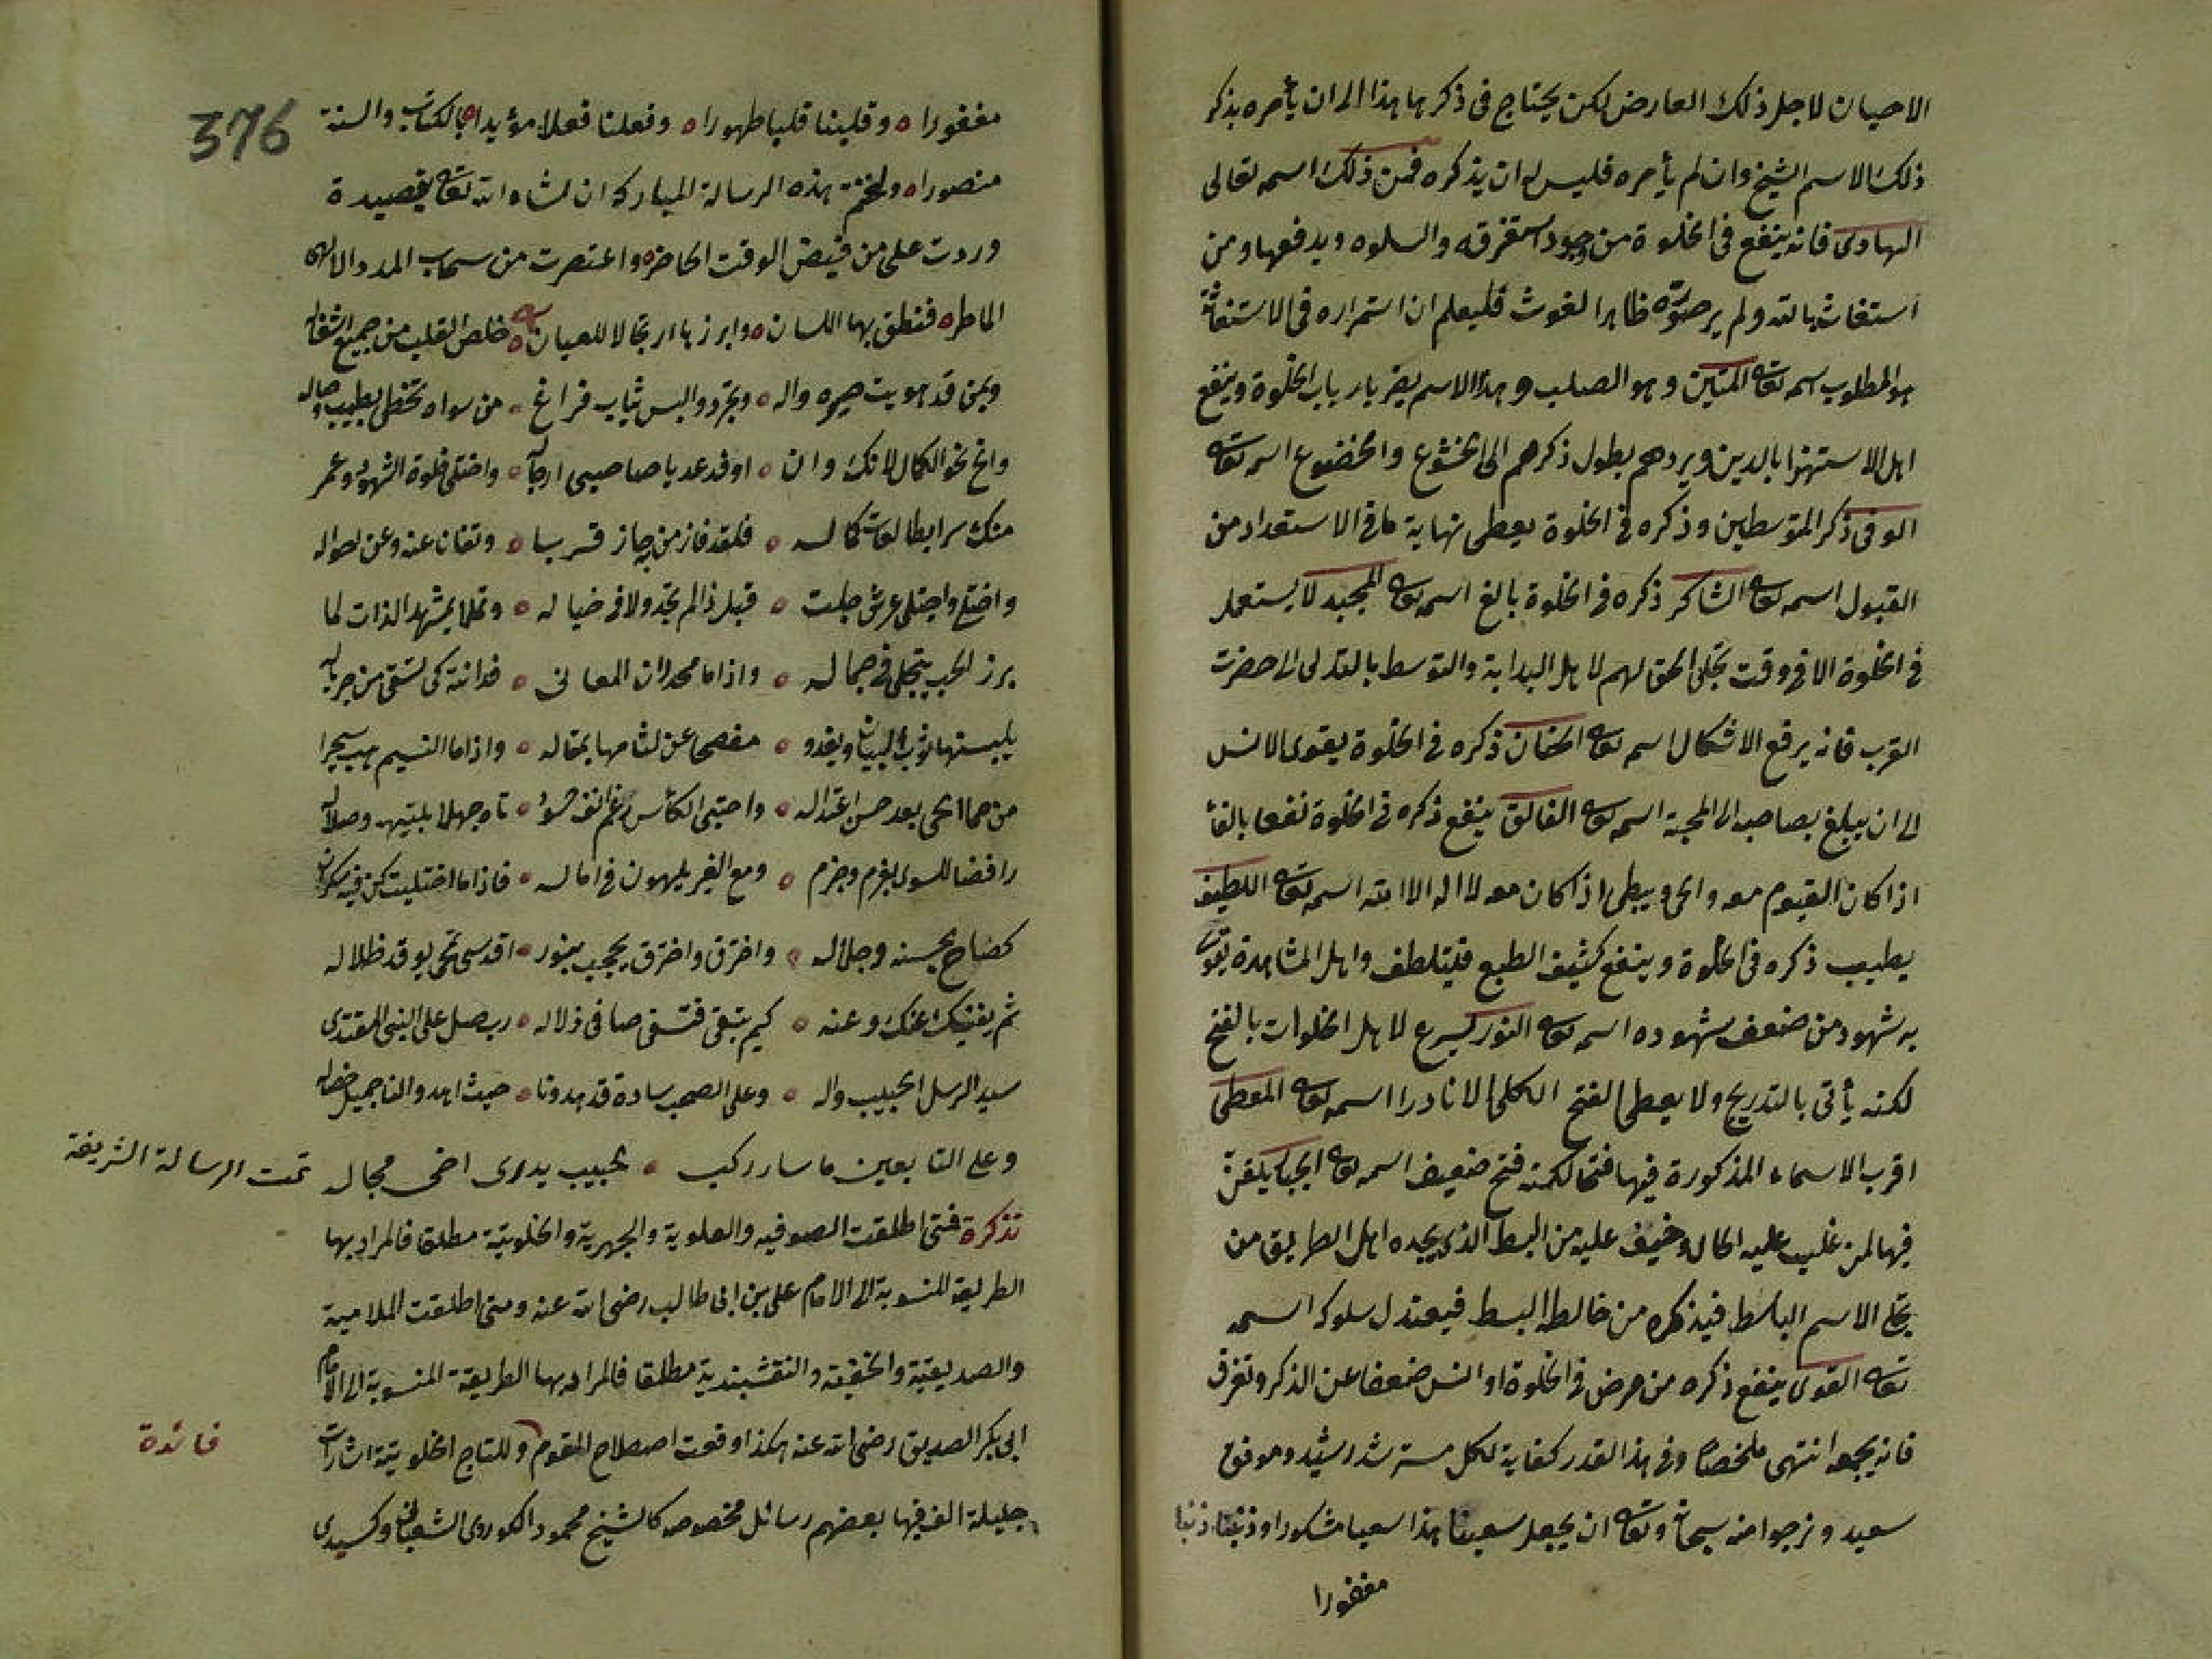 الاحيان لاجل ذلك العارض لكن يحتاج في ذكرها هذا الى ان يأمره بذكر
ذلك الاسم الشيخ وان لم يأمره فليس له ان يذكره فمن ذلك اسمه تعالى
الهادى فانه ينفع في الخلوة من وجود تفرقه والسلوه ويدفعها ومن
استغاث بالله ولم ير صورة ظاهر الغوث فليعلم ان استمراره في الاستغاثة
هو المطلوب اسمه تعه المتين وهو الصلب وهذا الاسم يضر بارباب الخلوة وينفع
اهل الاستهزا بالدين ويردهم بطول ذكرهم الى الخشوع والخضوع اسمه تعه
الوفى ذكر المتوسطين وذكره في الخلوة يعطى نهاية ما في الاستعداد من
القبول اسمه تعه الشاكر ذكره في الخلوة بالغ اسمه تعه المجيد لا يستعمل
في الخلوة الا في وقت تجلى الحق لهم لاهل البداية والتوسط بالتدلى الى حضرت
القرب فانه يرفع الاشكال اسمه تعه الحنان ذكره في الخلوة يقوى الانس
الى ان يبلغ بصاحبه الى المحبة اسمه تعه الفالق ينفع ذكره في الخلوة نفعا بالغا
اذا كان القيوم معه والحى ويبطى اذا كان معه لا اله الا الله اسمه تعه اللطيف
يطيب ذكره في الخلوة وينفع كثيف الطبع فيتلطف واهل المشاهدة يقوى
به شهود من ضعف شهوده اسمه تعه النور يسرع لاهل الخلوات بالفتح
لكنه يأتى بالتدريج ولا يعطى الفتح الكلى الا نادرا اسمه تعه المعطى
اقرب الاسماء المذكورة فيها فتحا لكنه فتح ضعيف اسمه تعه يلقن
فيها لمن غلب عليه الحال وخيف عليه من البسط الذى يجده اهل الطريق من
تجلى الاسم الباسط فيذكره من خالطه البسط فيعتدل سلوكه اسمه
تعه القوى ينفع ذكره من مرض في الخلوة او انس ضعفا عن الذكر وتفرق
فانه يجمعه انتهى ملخصا وفى هذا القدر كفاية لكل مسترشد رشيد وموفق
سعيد ونرجوا منه سبحانه وتعه ان يجعل سعينا هذا سعيا مشكورا وذنبنا ذنبا
مغفورا
376
مغفورا وقلبنا قلبا طهورا وفعلنا فعلا مؤيدا بالكتاب والسنة
منصورا ولنختم هذه الرسالة المباركة ان شاء الله تعه بقصيدة
وردت على من فيض الوقت الحاضره واعتصرت من سحاب المدد الالهى
الماطره فنطق بها اللسان وابرزها ارتجالا للعيان خلص القلب من جميع
وبمن قد هويت صيره واله وتجرد والبس ثياب فراغ من سواه تحظى بطيب وصاله
وانح نحو الكمال لا تك وان او فدعد يا صاحبى واختلى خلوة الشهود وعمر
منك سرا بطالعات كماله فلقد فاز من حاز قربا وتفان عنه وعن
واختلع واجتلى عرش جلت قبل ذا لم تجد ولا في خياله وتملا بمشهد الذات لما
برز الحب يتجلى في جماله واذا ما محدان المعانى فدانته كى تسقى من
يلبسنها ثوب البيان ويغدو مفصحا عن لثامها بمقاله واذا ما النسيم هب سحيرا
من حما الحى بعد حسن اعتداله واحتسى الكأس رغم انف تاه جهلا بلتيه وصلا
رافضا للسوى بعزم وحزم ومع الغير يلهون في اماله فاذا ما اختليت كن فيه
بحسنه وجلاله واخترق واخترق بحجب بنور اقدسى تحى بوقد ظلاله
ثم يفنيك عنك وعنه كيم تبقى فتسقى صافى زلاله رب صل على النبى المقتدى
سيد الرسل الحبيب واله وعلى الصحب سادة قد هدونا حيث اهدوا لنا جميل خصاله
وعلى التابعين ما سار ركب لحبيب يدرى اضحى مجاله تمت الرسالة الشريفة
تذكرة فمتى اطلقت الصوفيه والعلوية والجهرية والخلوتية مطلقا فالمراد بها
الطريقة المنسوبة الى الامام على بن ابى طالب رضى الله عنه ومتى اطلقت الملامية
والصديقية والخفيه والنقشبندية مطلقا فالمراد بها الطريقة المنسوبة الى الامام
ابى بكر الصديق رضى الله عنه هكذا وقعت اصطلاح القوم وللتاج الخلوتية اشارات
فائدة
جليلة الف فيها بعضهم رسائل مخصوصه كالشيخ محمود الكوردى الشعبانى وكسيدى